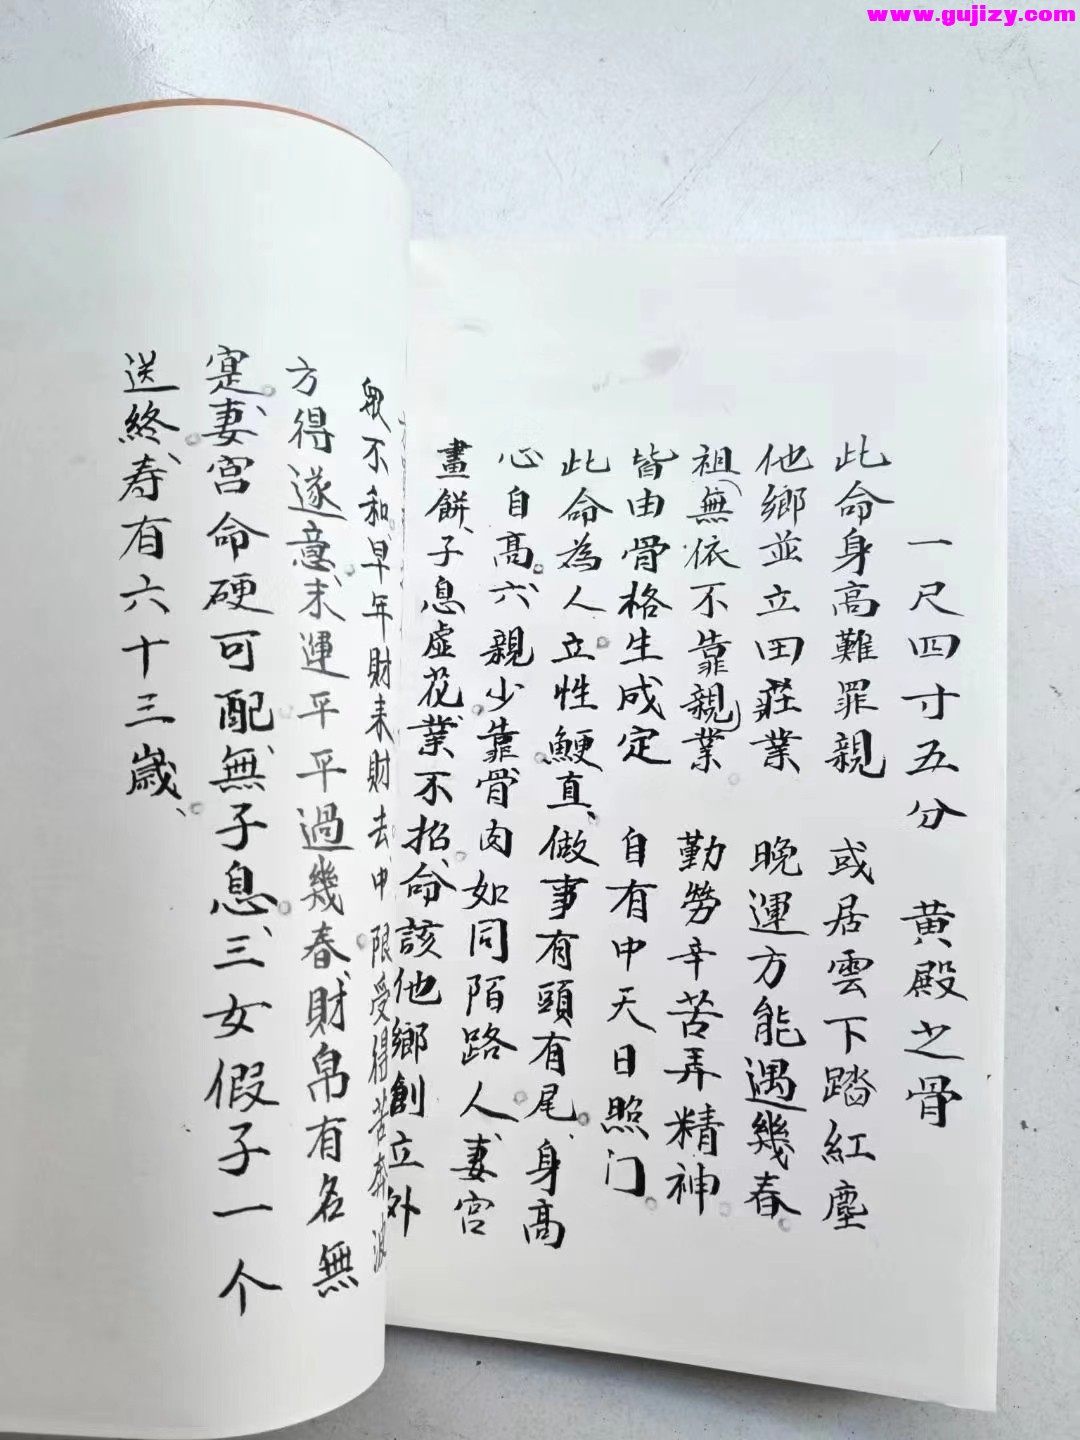 www.gujizy.com
一尺四寸五分　黄殿之骨
此命身高難罪親　或居雲下踏紅塵
他鄉並立田莊業　晚運方能遇幾春
祖無依不靠親業　勤勞辛苦弄精神
皆由骨格生成定　自有中天日照门
此命為人立性鯁直、做事有頭有尾、身高
心自高。六親少靠骨肉如同陌路人、妻宮
畫餅、子息虛花、業不招、命該他鄉創立外
不和、早年財来財去、中限受得苦奔波
方得遂意、末運平平過幾春、財帛有名無
寔、妻宮命硬可配、無子息、三女假子一个
送終、寿有六十三歲、